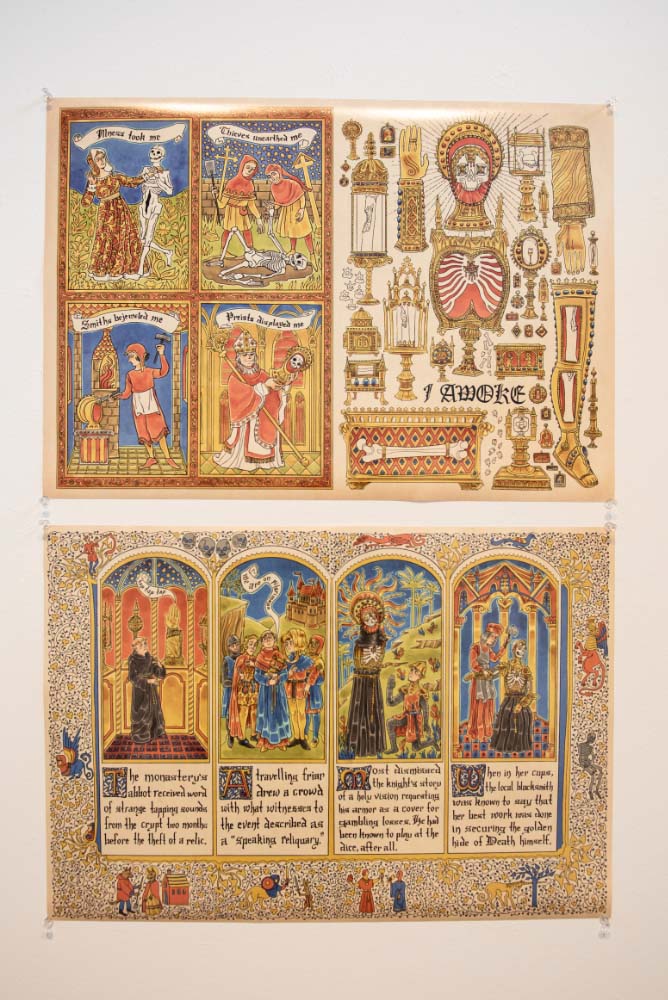 Illness took me
Thieves unearthed me
Smiths bejeweled me
Preists displayed me
I AWOKE
tap tap
The monastery's
abbot received word
of strange tapping sounds
from the crypt two months
before the theft of a relic.
A travelling friar
drew a crowd
with what witnesses to
the event described as
a "speaking reliquary."
Most dismissed
the knight's story
of a holy vision requesting
his armor as a cover for
gambling losses. He had
been known to play at the
dice, after all.
When in her cups,
the local blacksmith
was known to say that
her best work was done
in securing the golden
hide of Death himself.